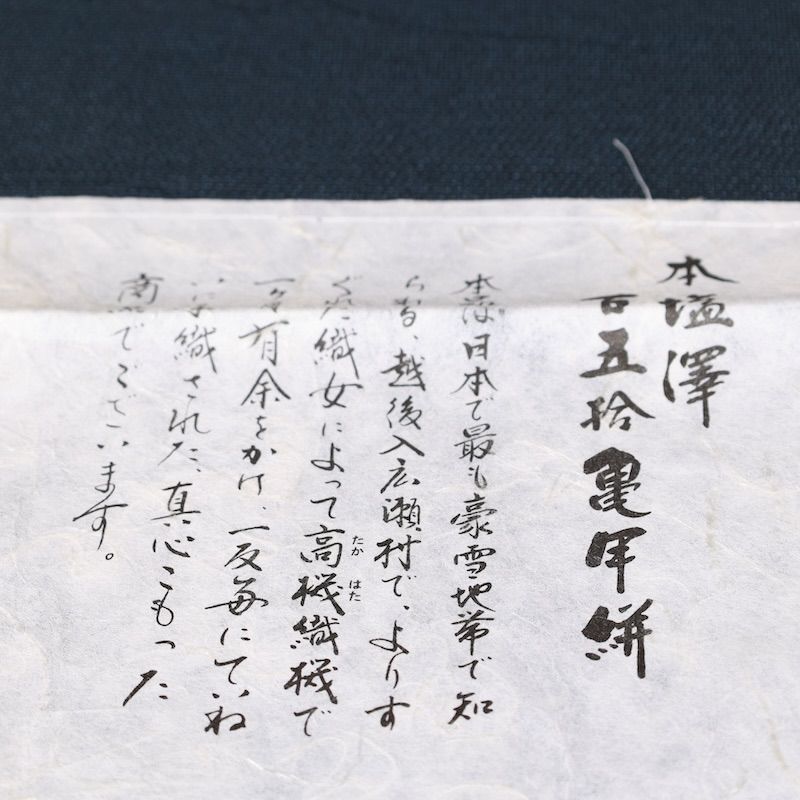 本塩澤
百五拾亀甲絣
本品は日本で最も豪雪地帯で知
られる、越後入広瀬村で、よりす
ぐった織女によって高機織機で
たか はた
一ヶ月余をかけ、一反毎にていね
いに織された、真心こもった
商品でございます。